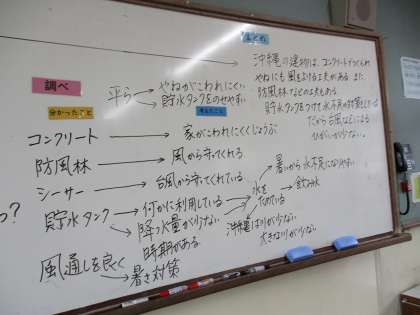 まとめ
沖縄の建物は、コンクリートでつくられ
やねにも風をよける工夫がある。また、
防風林などの工夫もある。
貯水タンクをつけて水不足の対策もしている
だから台風などによる
ひがいが少ない。
調べ
分かったこと
考えたこと
平ら
やねがこわれにくい
貯水タンクをのせやすい
コンクリート → 家がこわれにくくじょうぶ
防風林 → 風から守ってくれる
シーサー → 台風から守ってくれている
貯水タンク → 何かに利用している
降水量が少ない
時期がある。
水を
ためている
暑いから水不足になりやすい
飲み水
沖縄は川が少ない
大きな川が少ない
風通しを良く → 暑さ対策
つ?